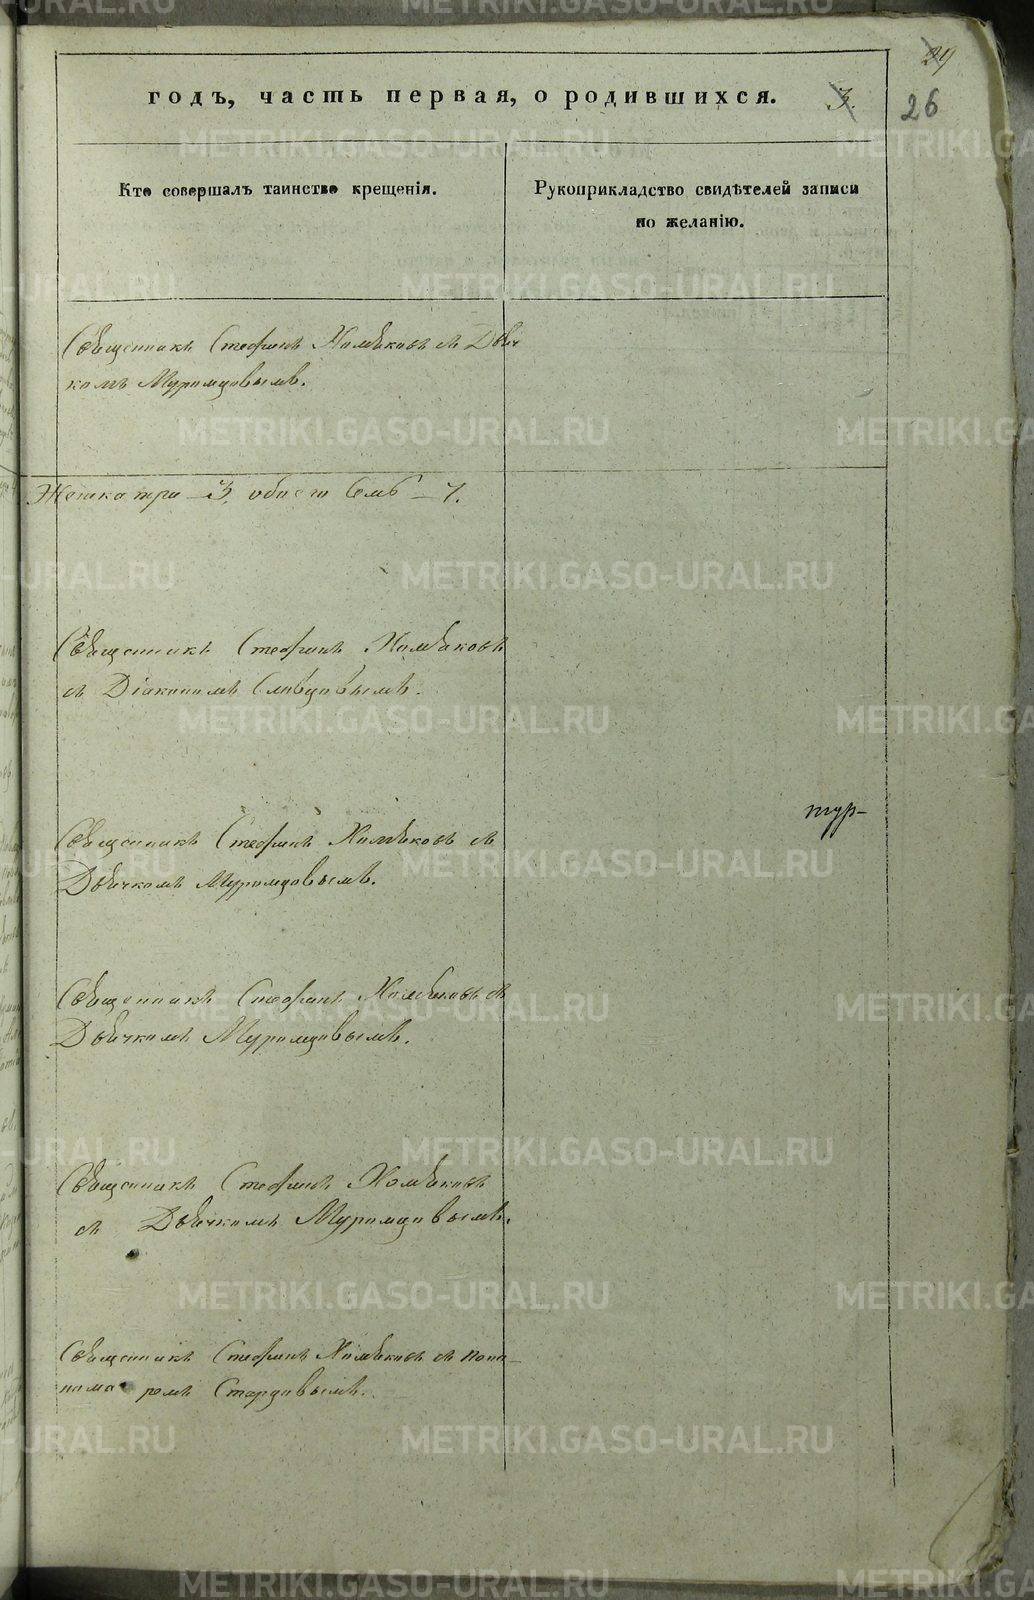 29
годъ, часть первая, о родившихся.
3.
26
Кто совершалъ таинство крещенія.
Рукоприкладство свидѣтелей записи
по желанію.
Священникъ Стефанъ Хомяковъ съ Дьяч
комъ Муромцовымъ.
Женска три - 3, обоего семь - 7.
Священникъ Стефанъ Хомяковъ
съ Діакономъ Словцовымъ.
тур-
Священникъ Стефанъ Хомяковъ съ
Дьячкомъ Муромцовымъ.
Священникъ Стефанъ Хомяковъ съ
Дьячкомъ Муромцовымъ.
Священникъ Стефанъ Хомяковъ
съ Дьячкомъ Муромцовымъ.
Священникъ Стефанъ Хомяковъ съ
METRIKI.GASO-URAL.RU